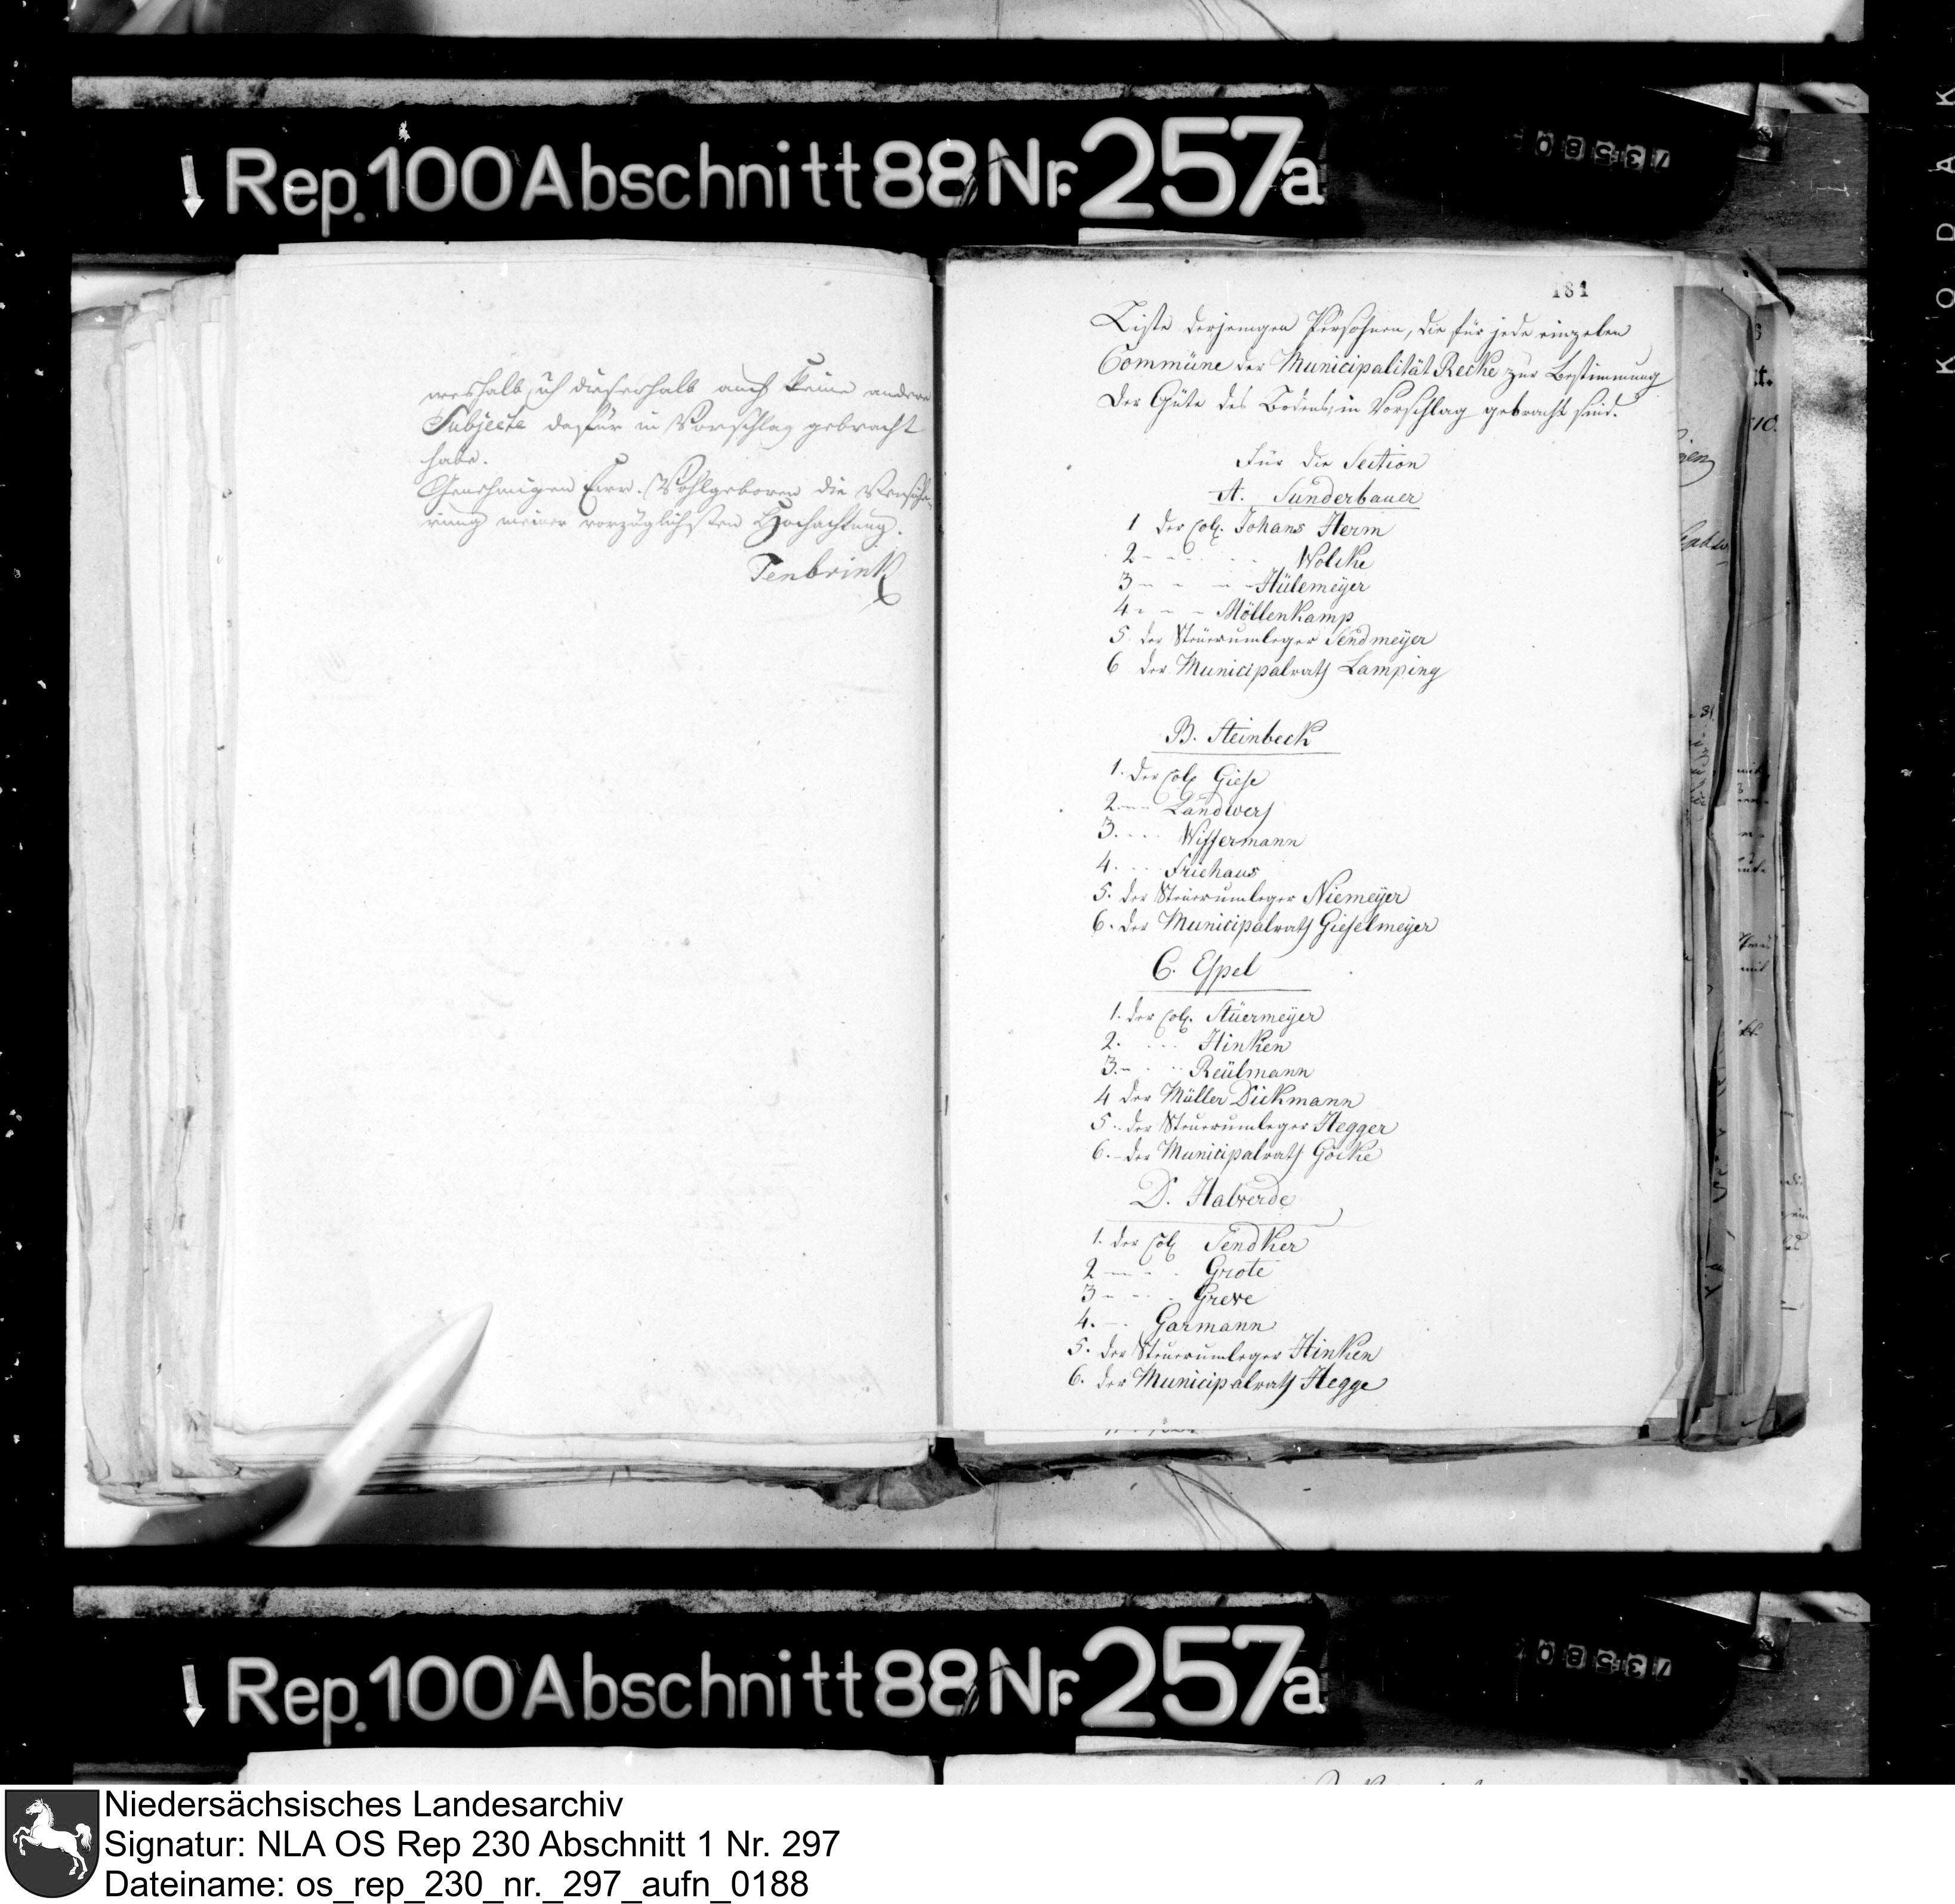 Rep. 100 Abschnitt 88 Nr. 257a
73580
KODAK
weshalb ich dieserhalb auch keine andere
Subjecte dafür in Vorschlag gebracht
habe.
Genehmigen Eurr. Wohlgeboren die Versiche-
rung meiner vorzüglichsten Hochachtung.
Tenbrink
181
Liste derjenigen Persohnen, die für jede einzelen
Commüne der Municipalität Recke zur Bestimmung
der Güte des Bodens, in Vorschlag gebracht sind.
Für die Section
A. Sunderbauer
1 der Col. Johans Herm
2 - - - - Wölcke
3 - - - - Hülemeÿer
4 - - - Möllenkamp
5 der Steüerumleger Sendmeÿer
6 der Municipalrath Lamping
B. Steinbeck
1. der Col. Giese
2 - - - Landwerh
3. - - - Wissermann
4. - - Friehaus
5. der Steuerumleger Niemeÿer
6. der Municipalrath Gieselmeÿer
C. Espel
1. der Col. Stüermeÿer
2. - - - Hinken
3. - - - Reülmann
4 der Müller Dickmann
5. der Steuerumleger Hegger
6. der Municipalrath Göcke
D. Halverde
1. der Col. Sendker
2 - - - Grote
3 - - - Greve
4. - - Garmann
5. der Steuerumleger Hinken
6. der Municipalrath Hegge
Rep. 100 Abschnitt 88 Nr. 257a
73580
Niedersächsisches Landesarchiv
Signatur: NLA OS Rep 230 Abschnitt 1 Nr. 297
Dateiname: os_rep_230_nr._297_aufn_0188